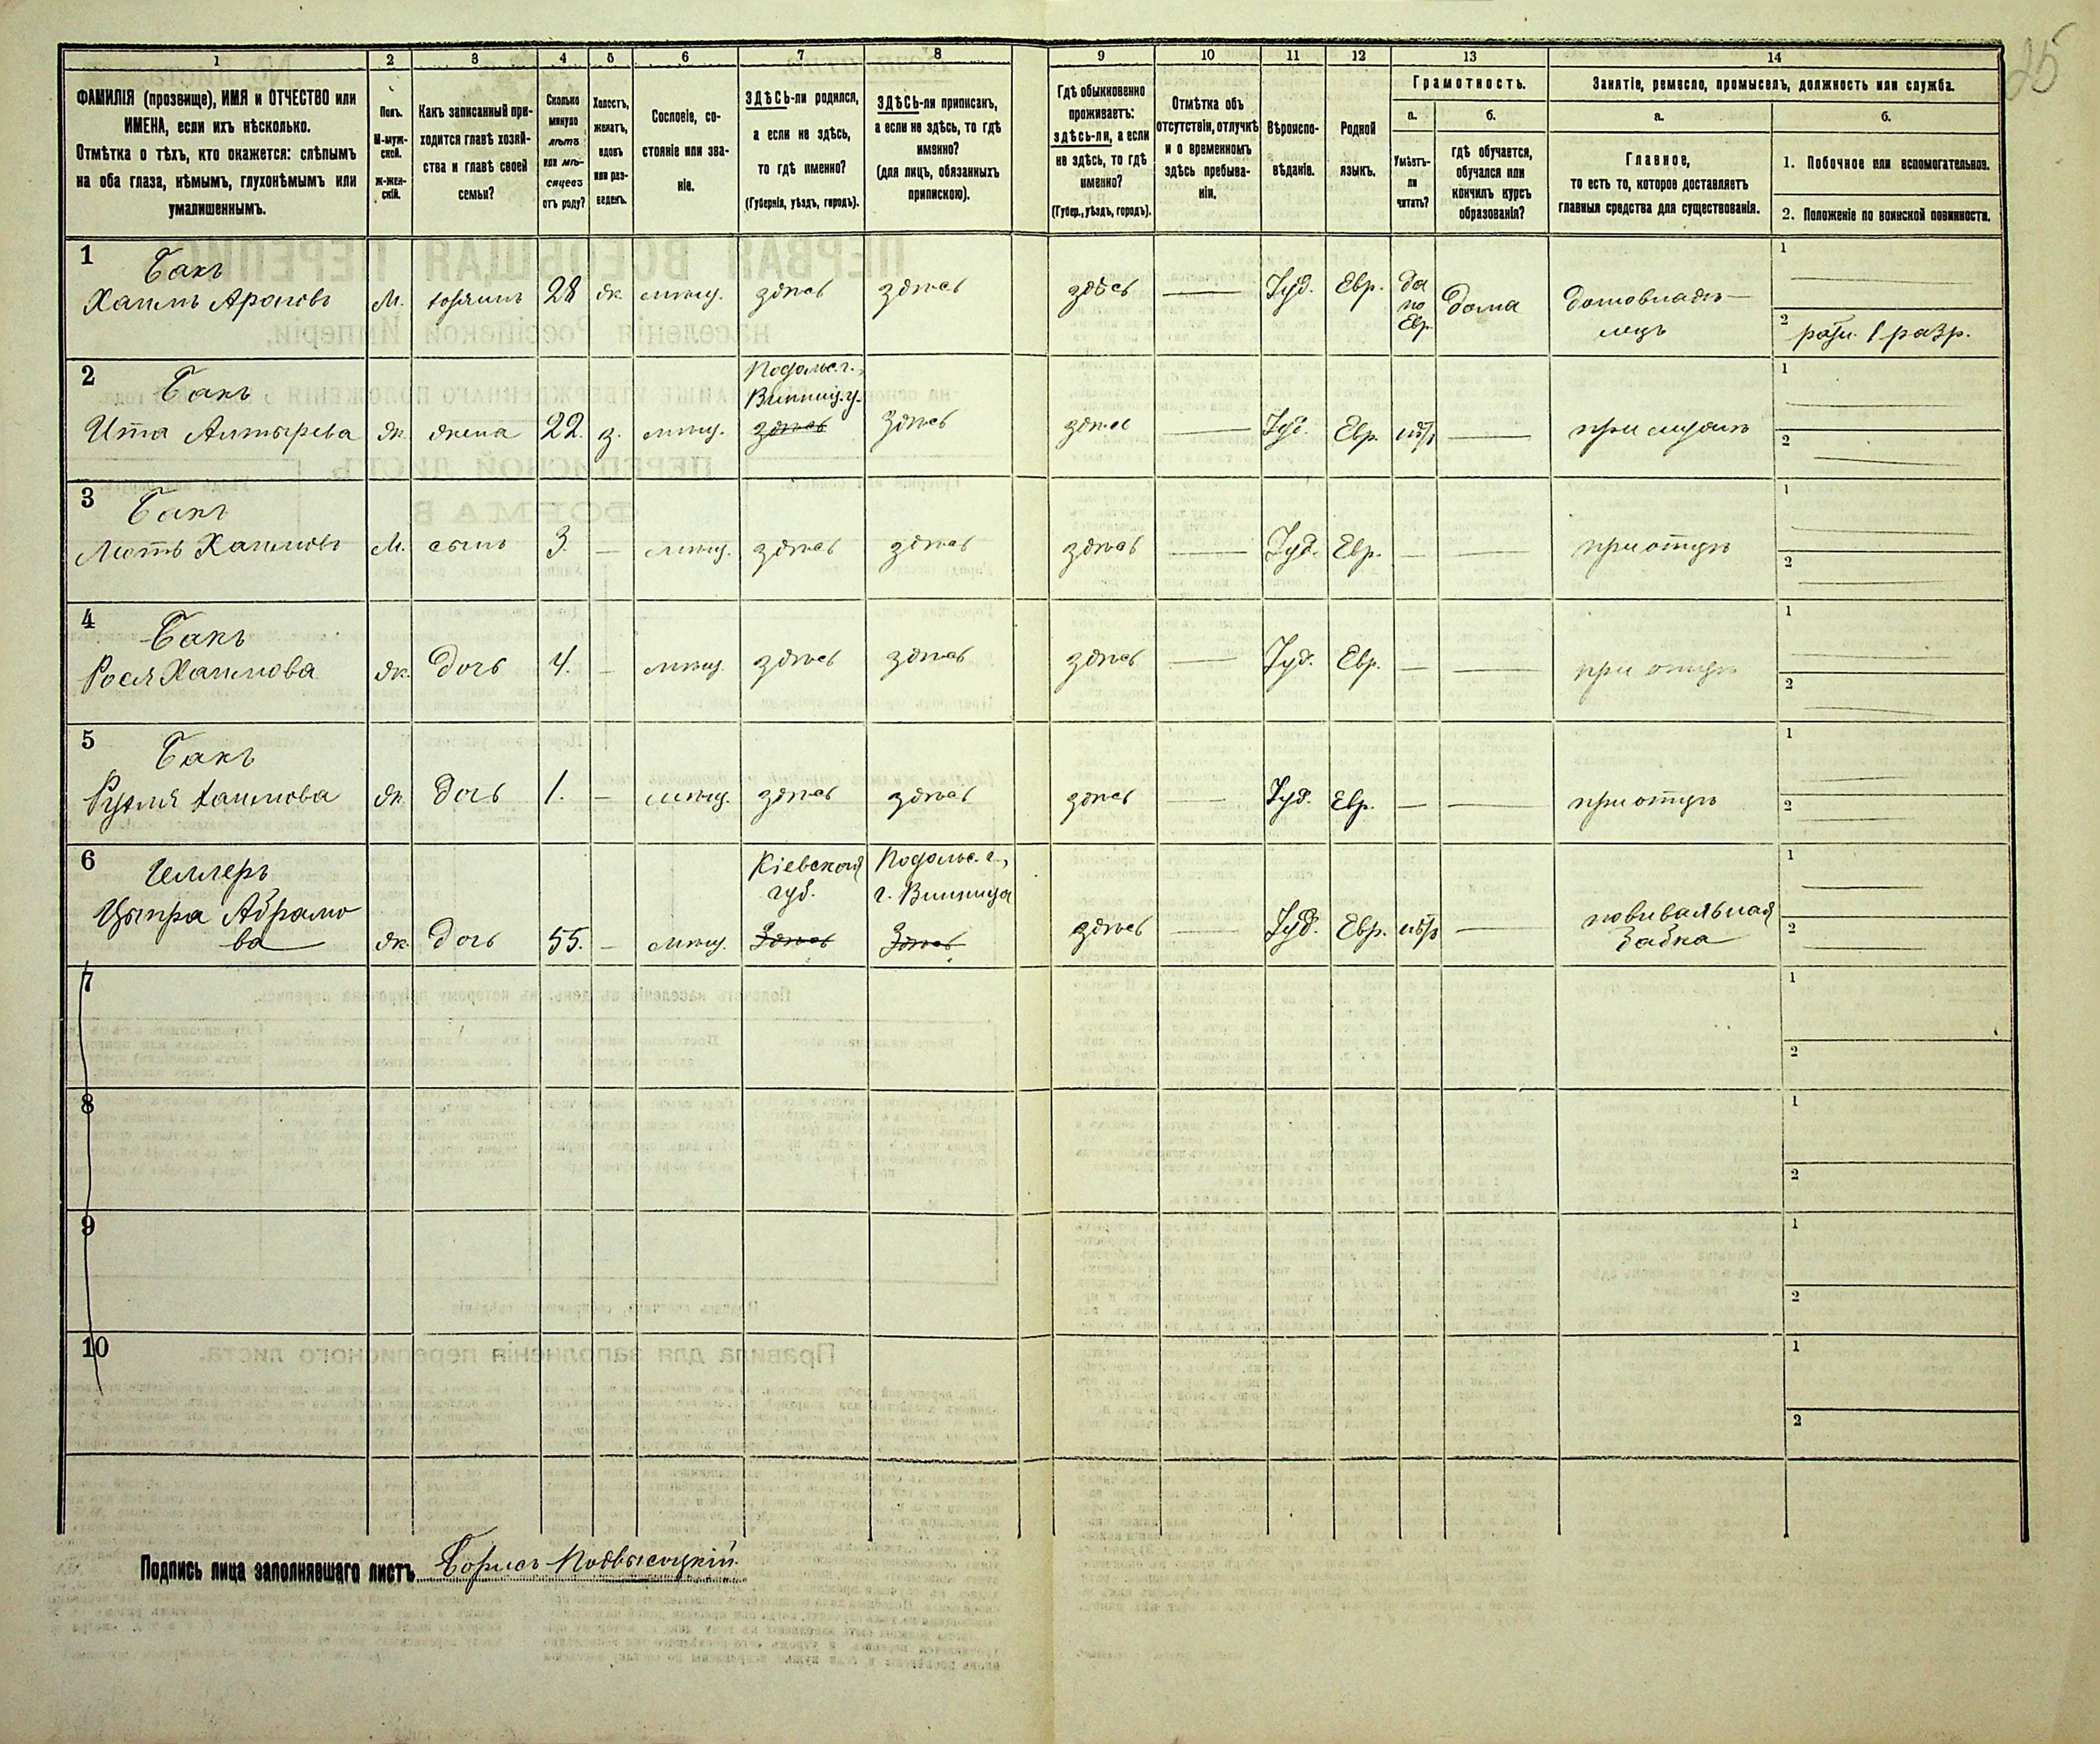 25
1 2 3 4 5 6 7 8 9 10 11 12 13 14
ФАМИЛІЯ (прозвище), ИМЯ и ОТЧЕСТВО или
ИМЕНА, если ихъ нѣсколько.
Отмѣтка о тѣхъ, кто окажется: слѣпымъ
на оба глаза, нѣмымъ, глухонѣмымъ или
умалишеннымъ.
Полъ.
М-муж-
ской.
Ж-жен-
скій.
Какъ записанный при-
ходится главѣ хозяй-
ства и главѣ своей
семьи?
Сколько
минуло
лѣтъ
или мѣ-
сяцевъ
отъ роду?
Холостъ,
женатъ,
вдовъ
или раз-
веденъ.
Сословіе, со-
стояніе или зва-
ніе.
ЗДѢСЬ-ли родился,
а если не здѣсь,
то гдѣ именно?
(Губернія, уѣздъ, городъ).
ЗДѢСЬ-ли приписанъ,
а если не здѣсь, то гдѣ
именно?
(для лицъ, обязанныхъ
припискою).
Гдѣ обыкновенно
проживаетъ:
здѣсь-ли, а если
не здѣсь, то гдѣ
именно?
(Губер., уѣздъ, городъ).
Отмѣтка объ
отсутствіи, отлучкѣ
и о временномъ
здѣсь пребыва-
ніи.
Вѣроиспо-
вѣданіе.
Родной
языкъ.
Грамотность.
а.
Умѣетъ-
ли
читать?
б.
гдѣ обучается,
обучался или
кончилъ курсъ
образованія?
Занятіе, ремесло, промыселъ, должность или служба.
а.
Главное,
то есть то, которое доставляетъ
главныя средства для существованія.
б.
1. Побочное или вспомогательное.
2. Положеніе по воинской повинности.
1
Бакъ
Хаимъ Ароновъ М. хозяинъ 28 ж. мѣщ. здѣсь здѣсь здѣсь — Іуд. Евр. да
по
Евр. дома домовладѣ-
лецъ
1 —
2 ратн. 1 разр.
2
Бакъ
Ита ж. жена 22. з. мѣщ. Подольс. г.,
Винниц. у.
здѣсь здѣсь здѣсь — Іуд. Евр. нѣтъ — при мужѣ
1 —
2 —
3
Бакъ
Мотъ Хаимовъ М. сынъ 3. — мѣщ. здѣсь здѣсь здѣсь — Іуд. Евр. — — при отцѣ
1 —
2 —
4
Бакъ
Рося Хаимова ж. дочь 4. — мѣщ. здѣсь здѣсь здѣсь — Іуд. Евр. — — при отцѣ
1 —
2 —
5
Бакъ
Рухля Хаимова ж. дочь 1. — мѣщ. здѣсь здѣсь здѣсь — Іуд. Евр. — — при отцѣ
1 —
2 —
6
Цыпра Абрамо
ва ж. дочь 55. — мѣщ. Кіевской
губ.
Здѣсь Подольс. г.,
г. Винница
Здѣсь здѣсь — Іуд. Евр. нѣтъ — повивальная
бабка
1 —
2 —
7
1
2
8
1
2
9
1
2
10
1
2
Подпись лица заполнявшаго листъ Борисъ Подвысоцкій.